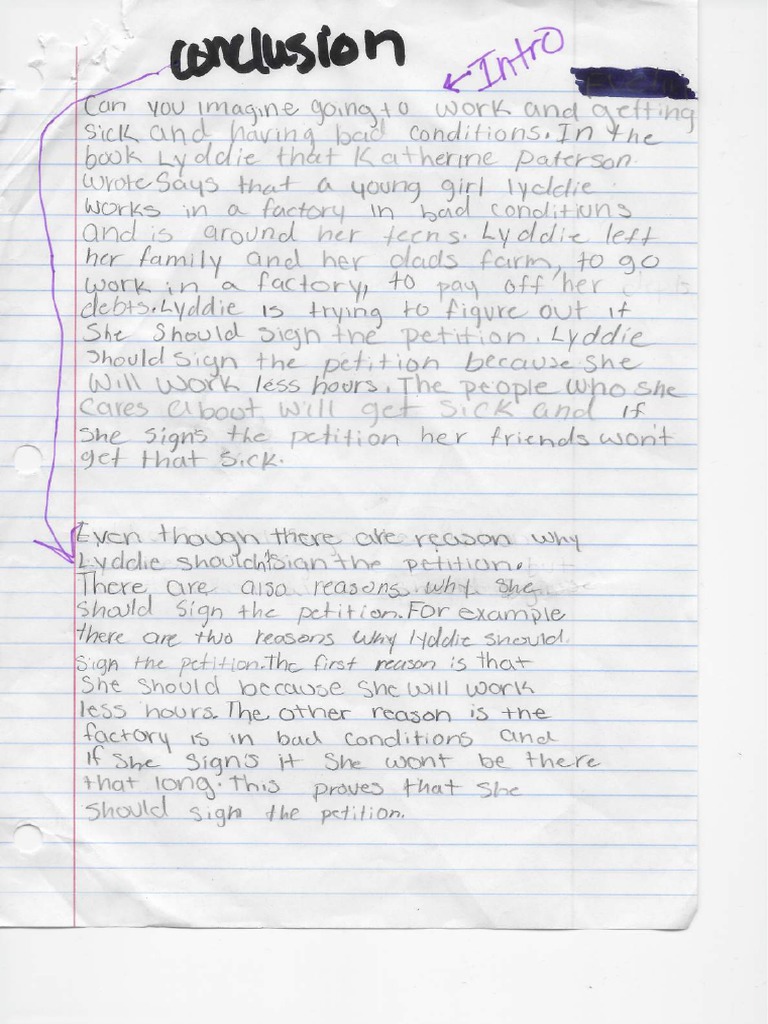 conclusion
Intro
Can you imagine going to work and getting
sick and having bad conditions. In the
book Lyddie that Katherine Paterson
wrote says that a young girl lyddie
works in a factory in bad conditions
and is around her teens. Lyddie left
her family and her dads farm, to go
work in a factory, to pay off her
debts. Lyddie is trying to figure out if
She should sign the petition. Lyddie
should sign the petition because she
will work less hours. The people who she
cares about will get sick and if
she signs the petition her friends won't
get that sick.
Even though there are reason why
Lyddie shouldn't sign the petition.
There are also reasons why she
should sign the petition. For example
there are two reasons why lyddie should
sign the petition. The first reason is that
she should because she will work
less hours. The other reason is the
factory is in bad conditions and
if she signs it she wont be there
that long. This proves that she
should sign the petition.